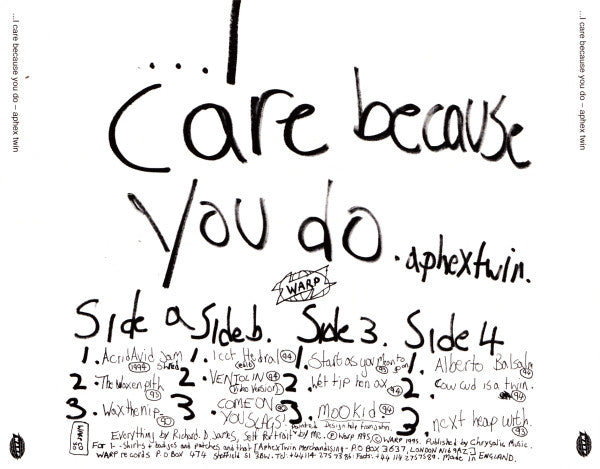 ...I care because you do – aphex twin
...I
care because
you do.
.aphextwin.
WARP
Side a
1. Acrid Avid Jam Shred
1994
2. The Waxen pith
93
3. Wax the nip
90
Side b.
1. Icct Hedral 94
(edit)
2. VENTOLIN 94
3. COME ON
YOU SLAGS!
Side 3.
1. Start as you mean to go on
2. Wet tip hen ax 94
3. MOOkid 94
Side 4
1. Alberto Balsalm
2. Cow cud is a twin.
94
3. next heap with.
93
Everything by Richard. D. James, Self Portrait by Me. Ⓟ Warp 1995 © WARP 1995. Published by Chrysalis Music.
For T-Shirts + badges and patches and that [Aphex Twin Merchandising - P.O BOX 3637, LONDON N16 9AZ]
WARP records P.O BOX 474 Sheffield
Made in ENGLAND.
...I care because you do – aphex twin